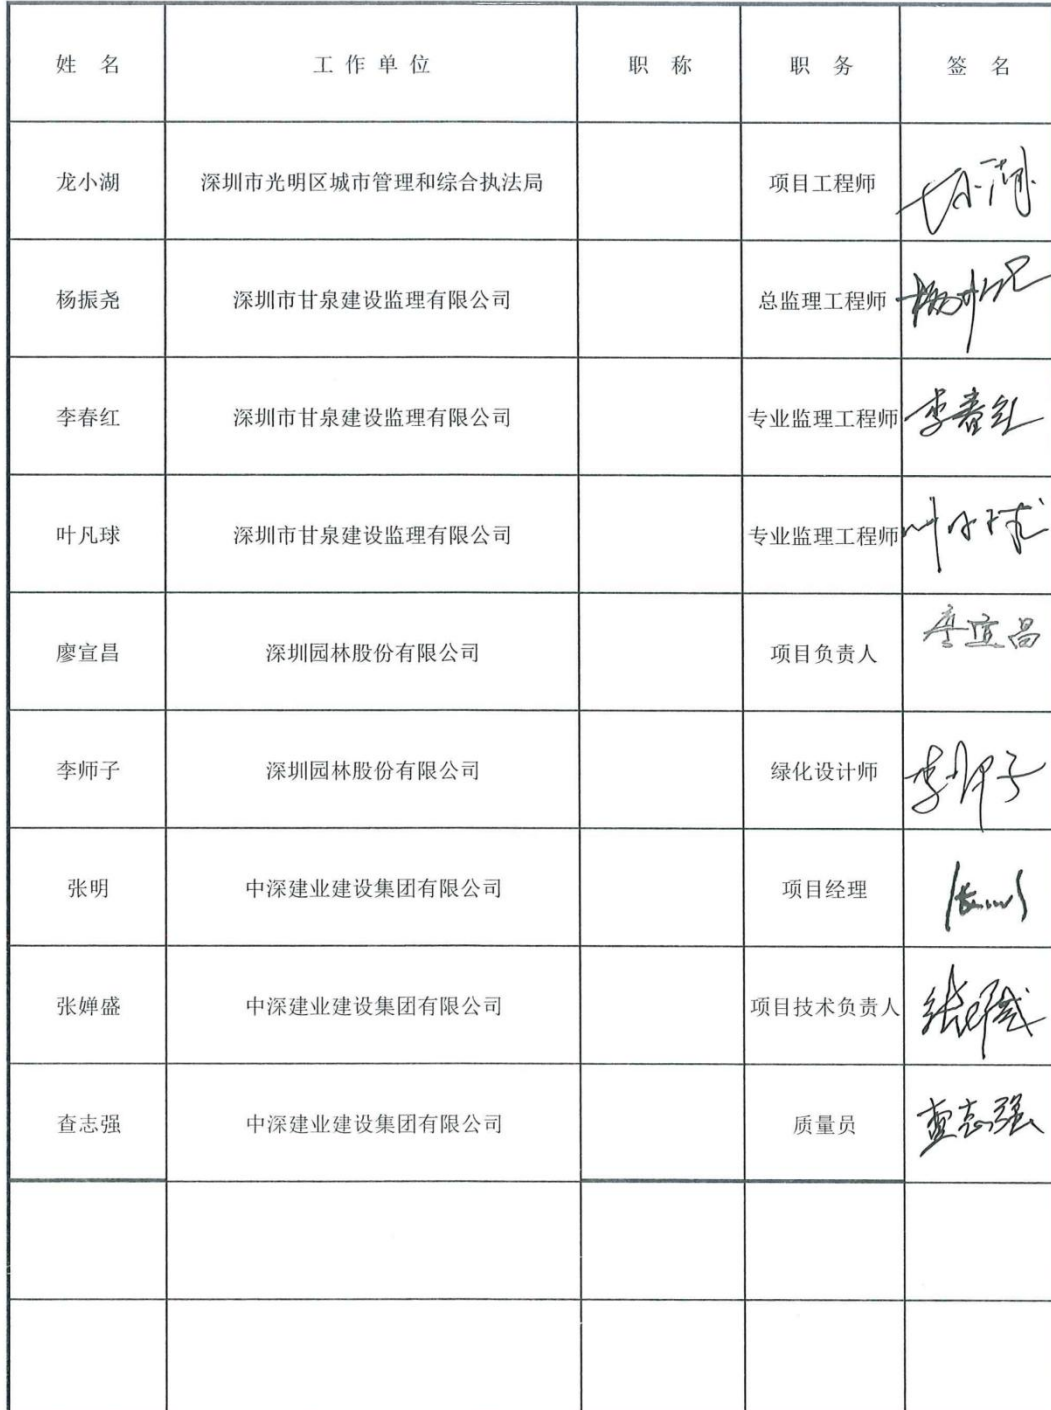 姓 名 工作单位 职 称 职 务 签 名
龙小湖 深圳市光明区城市管理和综合执法局 项目工程师
杨振尧 深圳市甘泉建设监理有限公司 总监理工程师
李春红 深圳市甘泉建设监理有限公司 专业监理工程师 李春红
叶凡球 深圳市甘泉建设监理有限公司 专业监理工程师
廖宣昌 深圳园林股份有限公司 项目负责人 廖宣昌
李师子 深圳园林股份有限公司 绿化设计师 李师子
张明 中深建业建设集团有限公司 项目经理
张婵盛 中深建业建设集团有限公司 项目技术负责人
查志强 中深建业建设集团有限公司 质量员 查志强